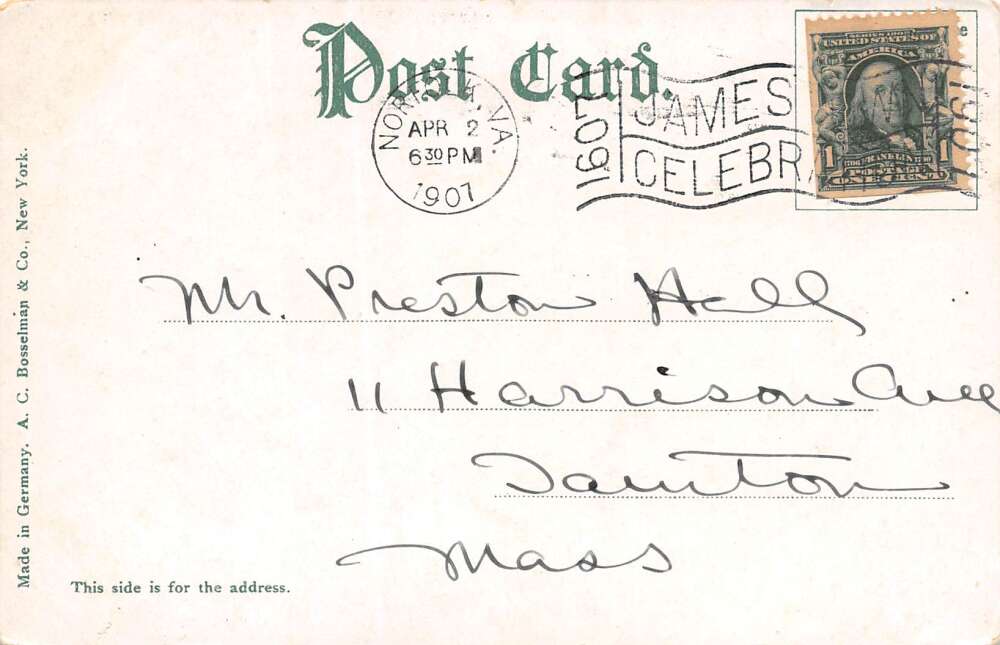 Post Card.
NORFOLK, VA.
APR 2
6 30 PM
1907
1607 JAMES 1907
CELEBRA
SERIES 1902
UNITED STATES OF
AMERICA
1706 FRANKLIN 1790
1 POSTAGE 1
ONE CENT
Mr. Preston Hall
11 Harrison Ave
Taunton
Mass
This side is for the address.
Made in Germany. A. C. Bosselman & Co., New York.